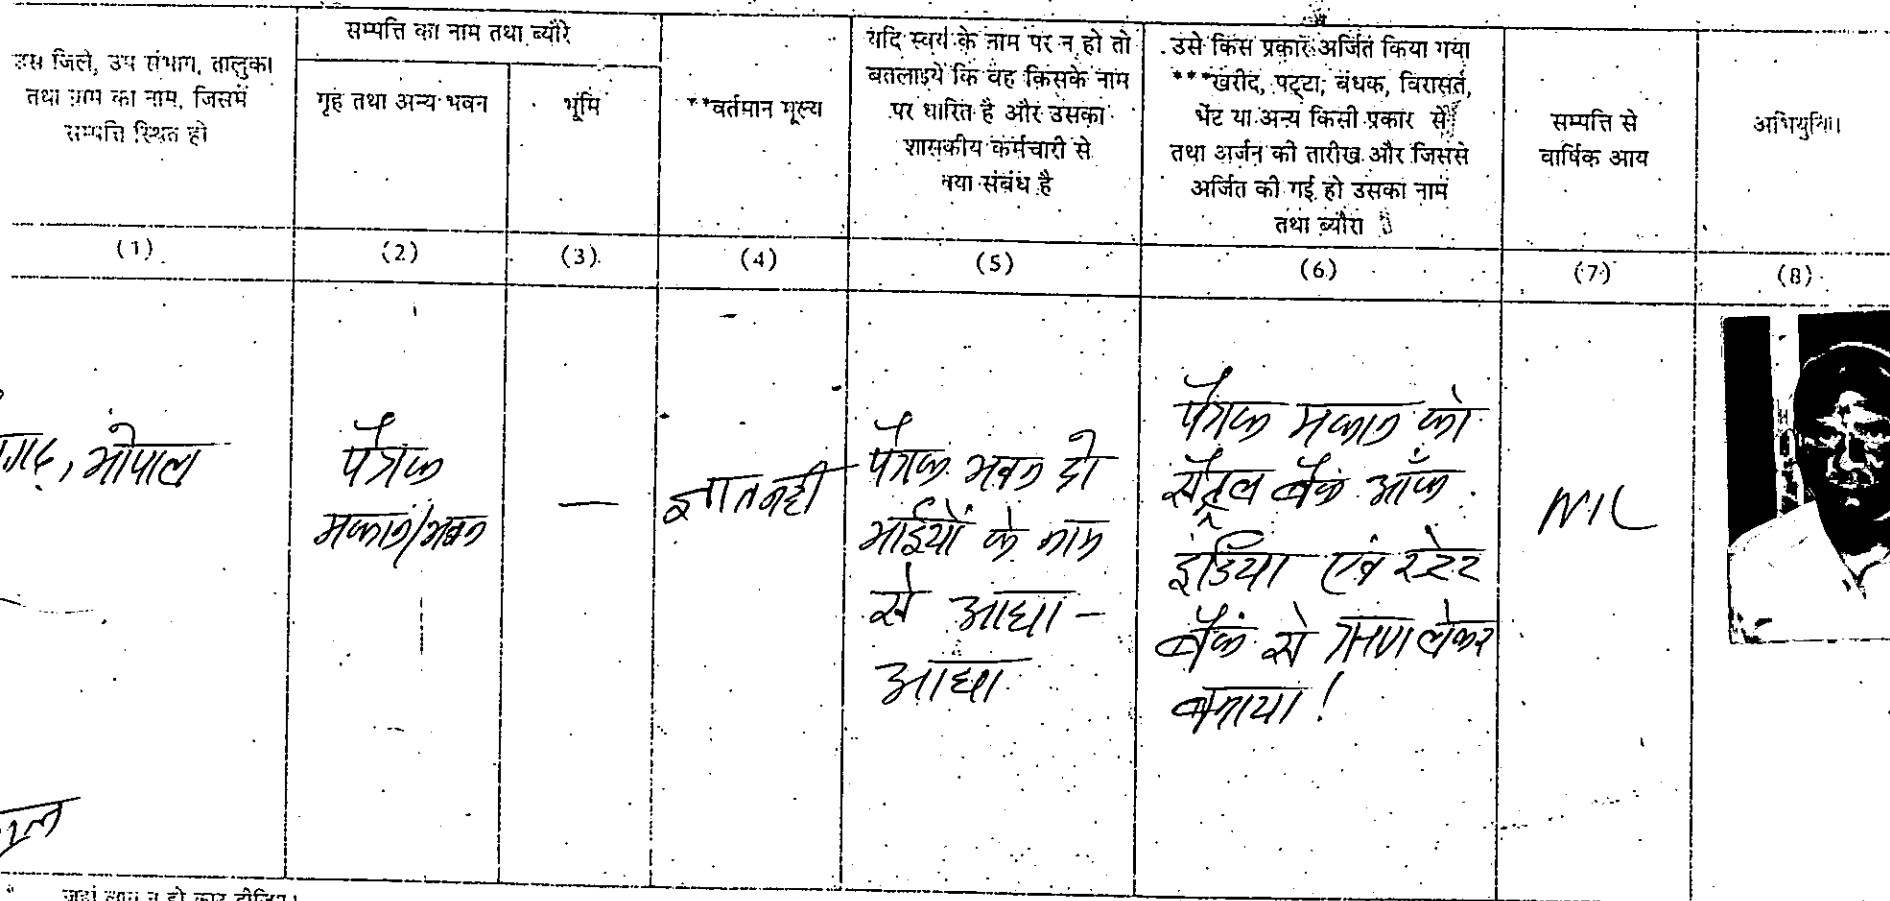 सम्पत्ति का नाम तथा ब्यौरे
उस जिले, उप संभाग, तालुका
तथा ग्राम का नाम, जिसमें
सम्पत्ति स्थित हो
गृह तथा अन्य भवन
भूमि
**वर्तमान मूल्य
यदि स्वयं के नाम पर न हो तो
बतलाइये कि वह किसके नाम
पर धारित है और उसका
शासकीय कर्मचारी से
क्या संबंध है
उसे किस प्रकार अर्जित किया गया
***खरीद, पट्टा, बंधक, विरासत,
भेंट या अन्य किसी प्रकार से
तथा अर्जन की तारीख और जिससे
अर्जित की गई हो उसका नाम
तथा ब्यौरा
सम्पत्ति से
वार्षिक आय
(1)
(2)
(3)
(4)
(5)
(6)
(7)
(8)
भोपाल
पैत्रक
मकान/भवन
—
ज्ञात नहीं
पैत्रक भवन दो
भाईयों के नाम
से आधा -
आधा
पैत्रक मकान को
सेंट्रल बैंक ऑफ
इंडिया एवं स्टेट
बैंक से ऋण लेकर
बनाया !
NIL